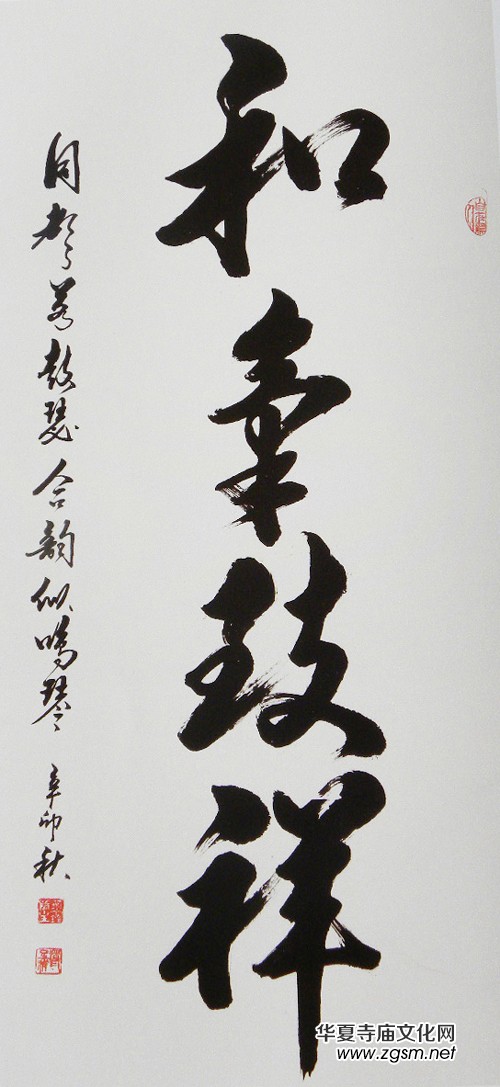 和氣致祥
同聲若鼓瑟合韵似鳴琴 辛卯秋
华夏寺庙文化网
www.zgsm.net